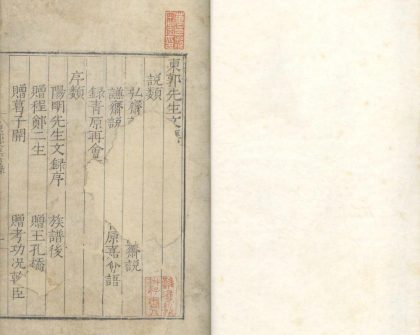 東郭先生文集
說類
弘齋 齋說
謙齋說 原嘉 語
錄青原再會
序類
陽明先生文錄序 族譜後
贈程鄭二生 贈王孔橋
贈葛子開 贈考功況 臣